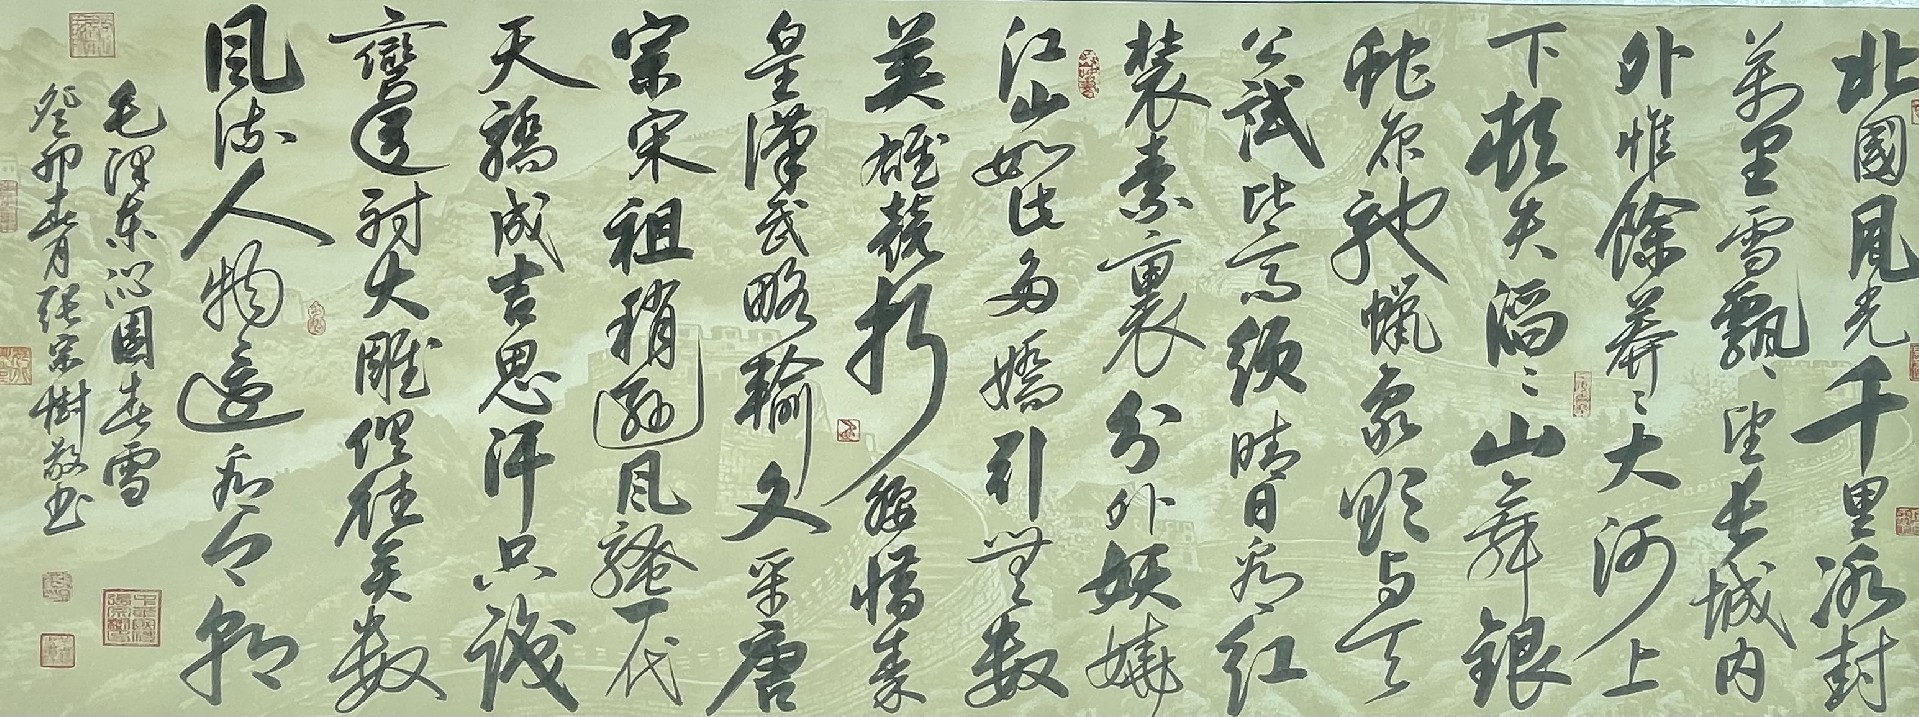 北國風光千里冰封
萬里雪飄望長城內
外惟餘莽莽大河上
下頓失滔滔山舞銀
蛇原馳蠟象欲與天
公試比高須晴日看紅
裝素裹分外妖嬈
江山如此多嬌引無數
英雄競折腰惜秦
皇漢武略輸文采唐
宗宋祖稍遜風騷一代
天驕成吉思汗只識
彎弓射大雕俱往矣數
風流人物還看今朝
毛澤東沁園春雪
癸卯春月張宗樹敬书